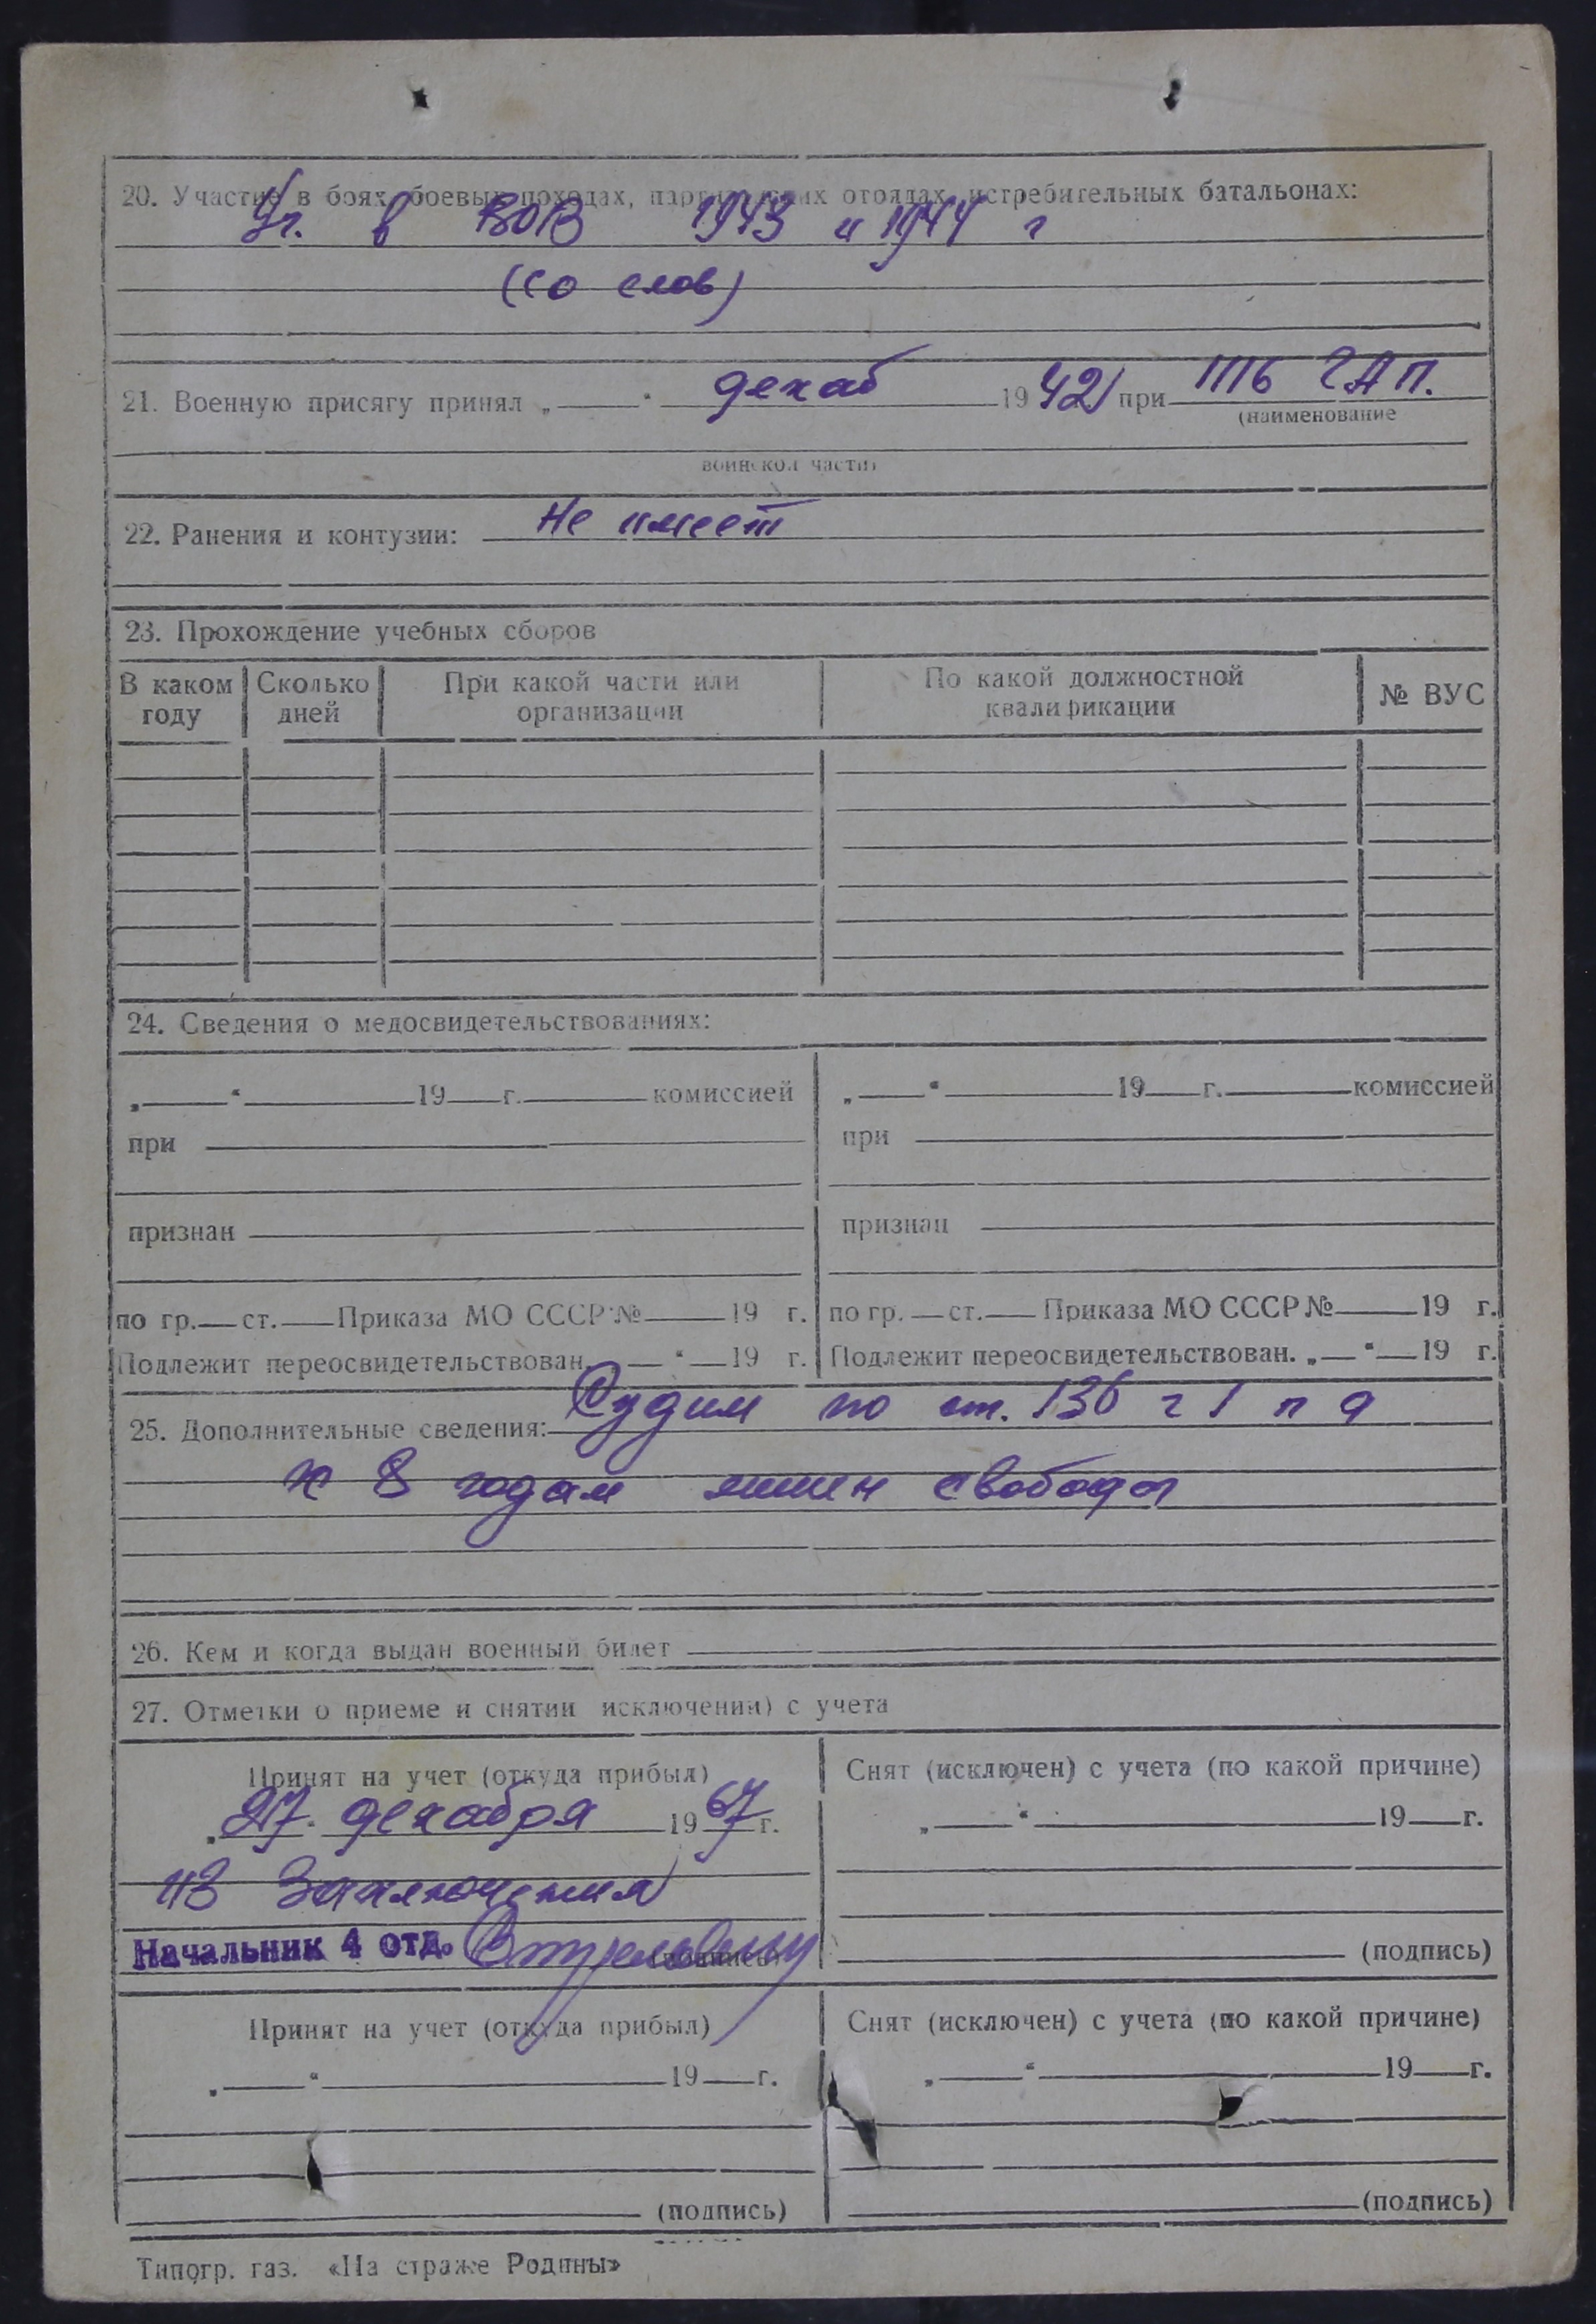 20. Участие в боях, боевых походах, партизанских отрядах, истребительных батальонах:
Уч. в ВОВ 1943 и 1944 г
(со слов)
21. Военную присягу принял „ “ декаб 1942 при ГАП.
(наименование
воинской части)
22. Ранения и контузии: Не имеет
23. Прохождение учебных сборов
В каком году
Сколько дней
При какой части или организации
По какой должностной квалификации
№ ВУС
24. Сведения о медосвидетельствованиях:
„ “ 19 г. комиссией
при
признан
по гр. ст. Приказа МО СССР № 19 г.
Подлежит переосвидетельствован. „ “ 19 г.
„ “ 19 г. комиссией
при
признан
по гр. ст. Приказа МО СССР № 19 г.
Подлежит переосвидетельствован. „ “ 19 г.
25. Дополнительные сведения: Судим по ст. 136 ч 1 п а
к 8 годам лишен свободы
26. Кем и когда выдан военный билет
27. Отметки о приеме и снятии исключении) с учета
Принят на учет (откуда прибыл)
„27“ декабря 1967 г.
из Заключения
Начальник 4 отд.
(подпись)
Снят (исключен) с учета (по какой причине)
„ “ 19 г.
(подпись)
Принят на учет (откуда прибыл)
„ “ 19 г.
(подпись)
Снят (исключен) с учета (по какой причине)
„ “ 19 г.
(подпись)
Типогр. газ. «На страже Родины»